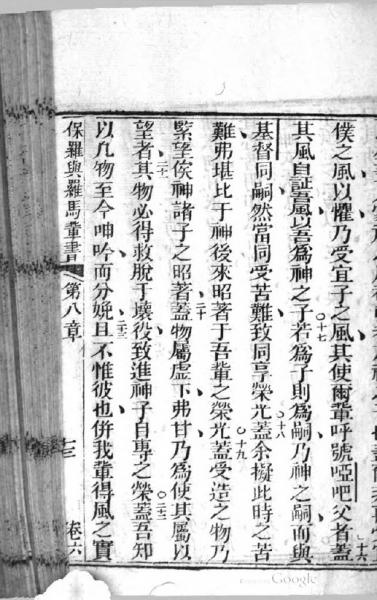 僕之風以懼乃受宜子之風其使爾輩呼號啞吧父者蓋
十六
其風自証吾風以吾為神之子若為子則為嗣乃神之嗣而與
十七
基督同嗣然當同受苦難致同享榮光蓋余擬此時之苦
十八
難弗堪比于神後來昭著于吾輩之榮光蓋受造之物乃
十九
緊望俟神諸子之昭著蓋物屬虛下弗甘乃為使其屬以
二十
望者其物必得救脫于壞役致進神子自專之榮蓋吾知
二十一
二十二
以凡物至今呻吟而分娩且不惟彼也併我輩得風之實
二十三
保羅與羅馬輩書
第八章
七三
卷六
Google